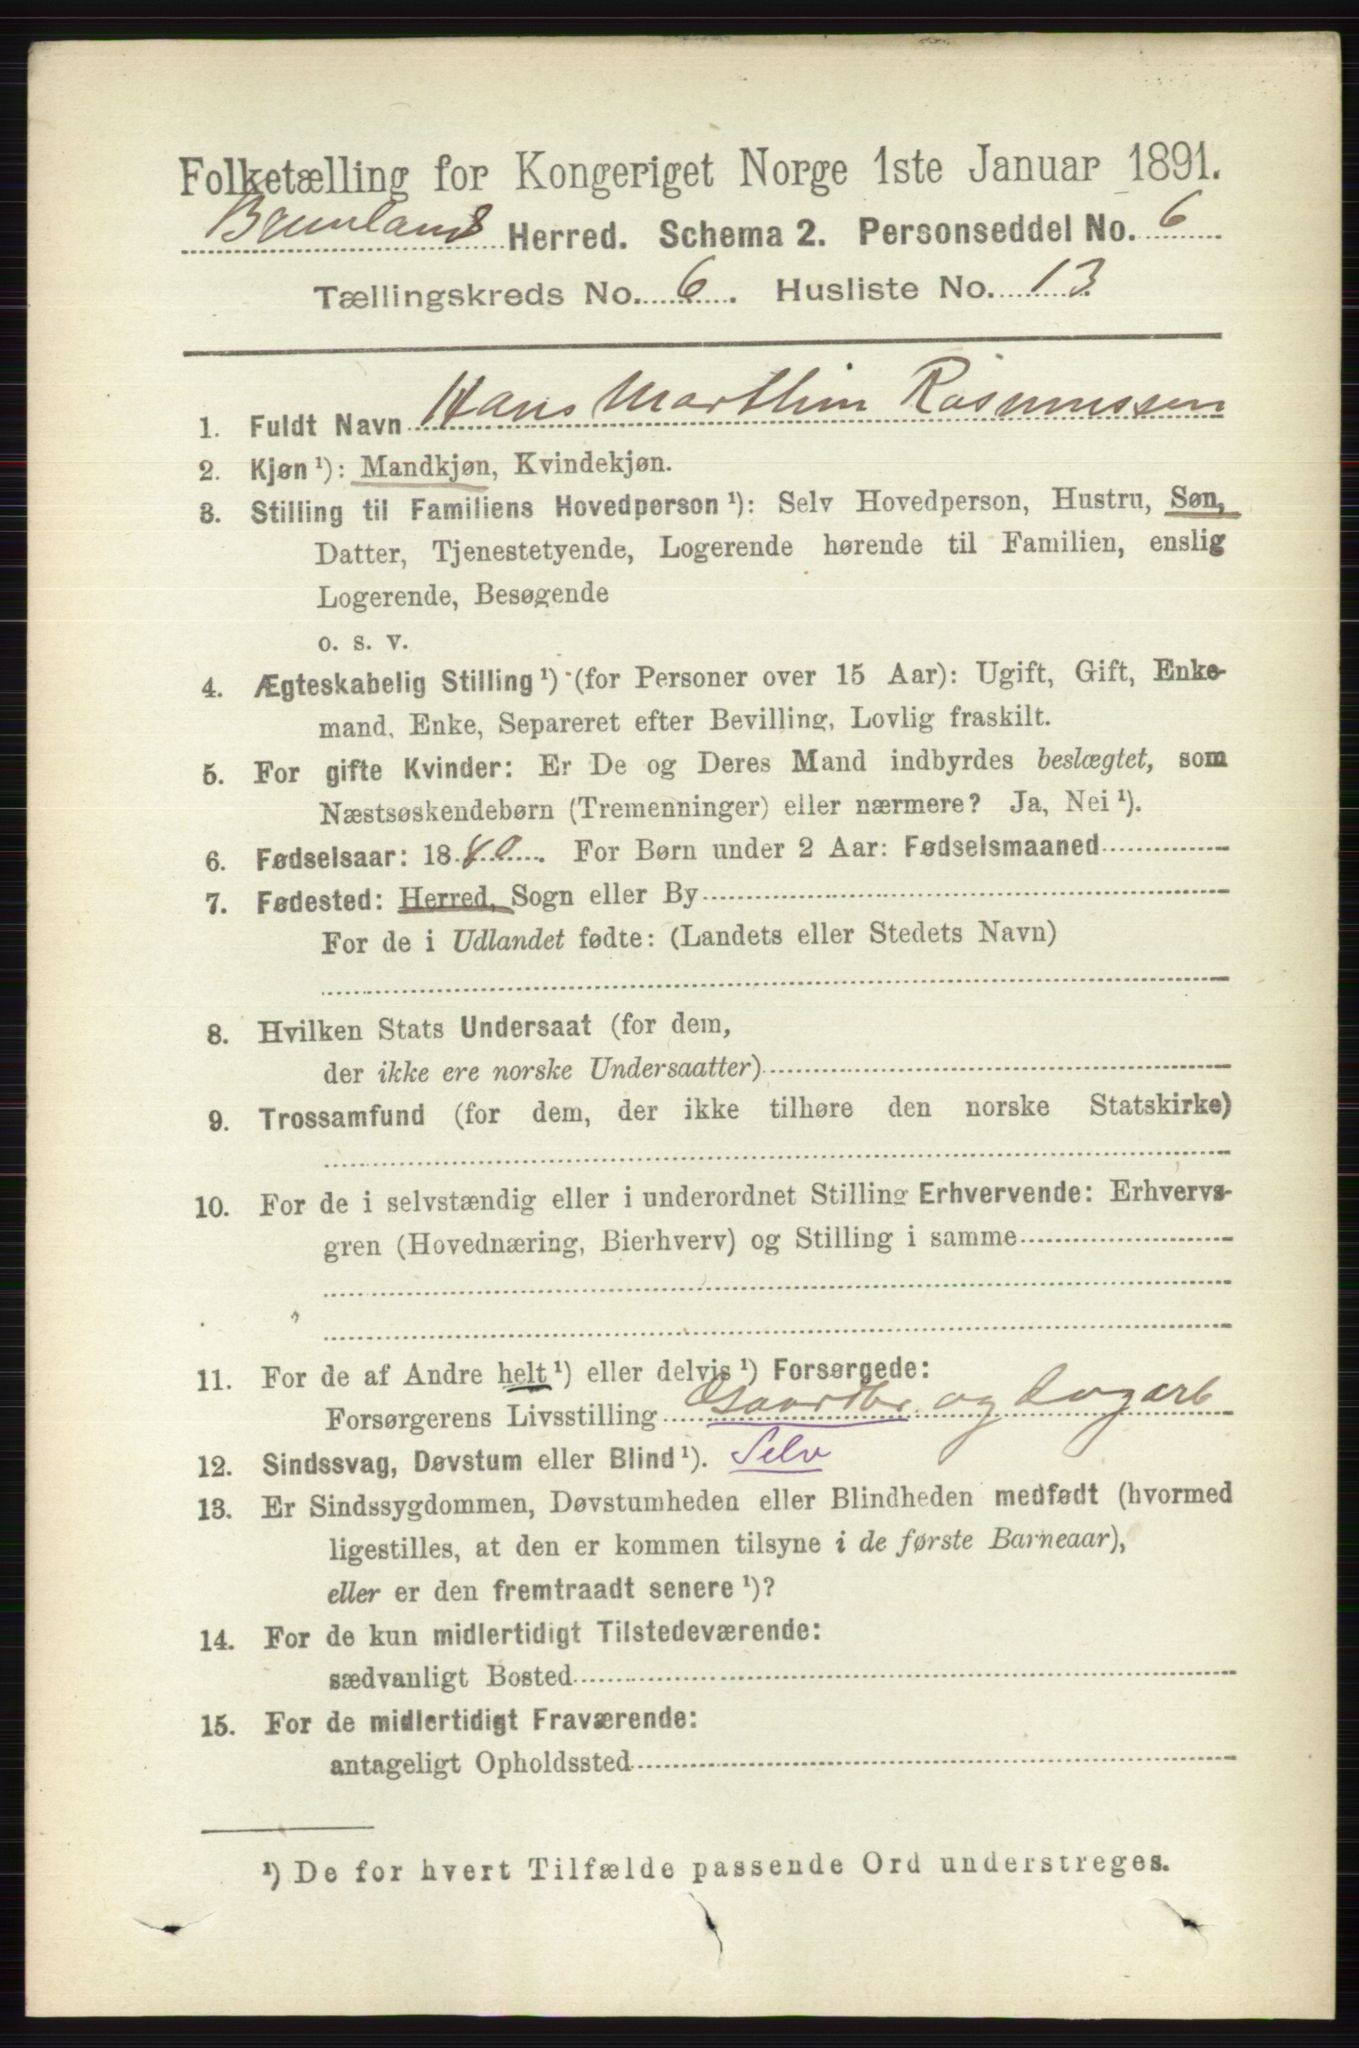 Folketælling for Kongeriget Norge 1ste Januar 1891.
Brunlanes Herred. Schema 2. Personseddel No. 6
Tællingskreds No. 6. Husliste No. 13
1. Fuldt Navn Hans Marthin Rasmussen
2. Kjøn ¹): Mandkjøn, Kvindekjøn.
3. Stilling til Familiens Hovedperson ¹): Selv Hovedperson, Hustru, Søn,
Datter, Tjenestetyende, Logerende hørende til Familien, enslig
Logerende, Besøgende
o. s. v.
4. Ægteskabelig Stilling ¹) (for Personer over 15 Aar): Ugift, Gift, Enke-
mand, Enke, Separeret efter Bevilling, Lovlig fraskilt.
5. For gifte Kvinder: Er De og Deres Mand indbyrdes beslægtet, som
Næstsøskendebørn (Tremenninger) eller nærmere? Ja, Nei ¹).
6. Fødselsaar: 1880. For Børn under 2 Aar: Fødselsmaaned
7. Fødested: Herred, Sogn eller By
For de i Udlandet fødte: (Landets eller Stedets Navn)
8. Hvilken Stats Undersaat (for dem,
der ikke ere norske Undersaatter)
9. Trossamfund (for dem, der ikke tilhøre den norske Statskirke)
10. For de i selvstændig eller i underordnet Stilling Erhvervende: Erhvervs-
gren (Hovednæring, Bierhverv) og Stilling i samme
11. For de af Andre helt ¹) eller delvis ¹) Forsørgede:
Forsørgerens Livsstilling Gaardbr og
12. Sindssvag, Døvstum eller Blind ¹). Selv
13. Er Sindssygdommen, Døvstumheden eller Blindheden medfødt (hvormed
ligestilles, at den er kommen tilsyne i de første Barneaar),
eller er den fremtraadt senere ¹)?
14. For de kun midlertidigt Tilstedeværende:
sædvanligt Bosted
15. For de midlertidigt Fraværende:
antageligt Opholdssted
¹) De for hvert Tilfælde passende Ord understreges.